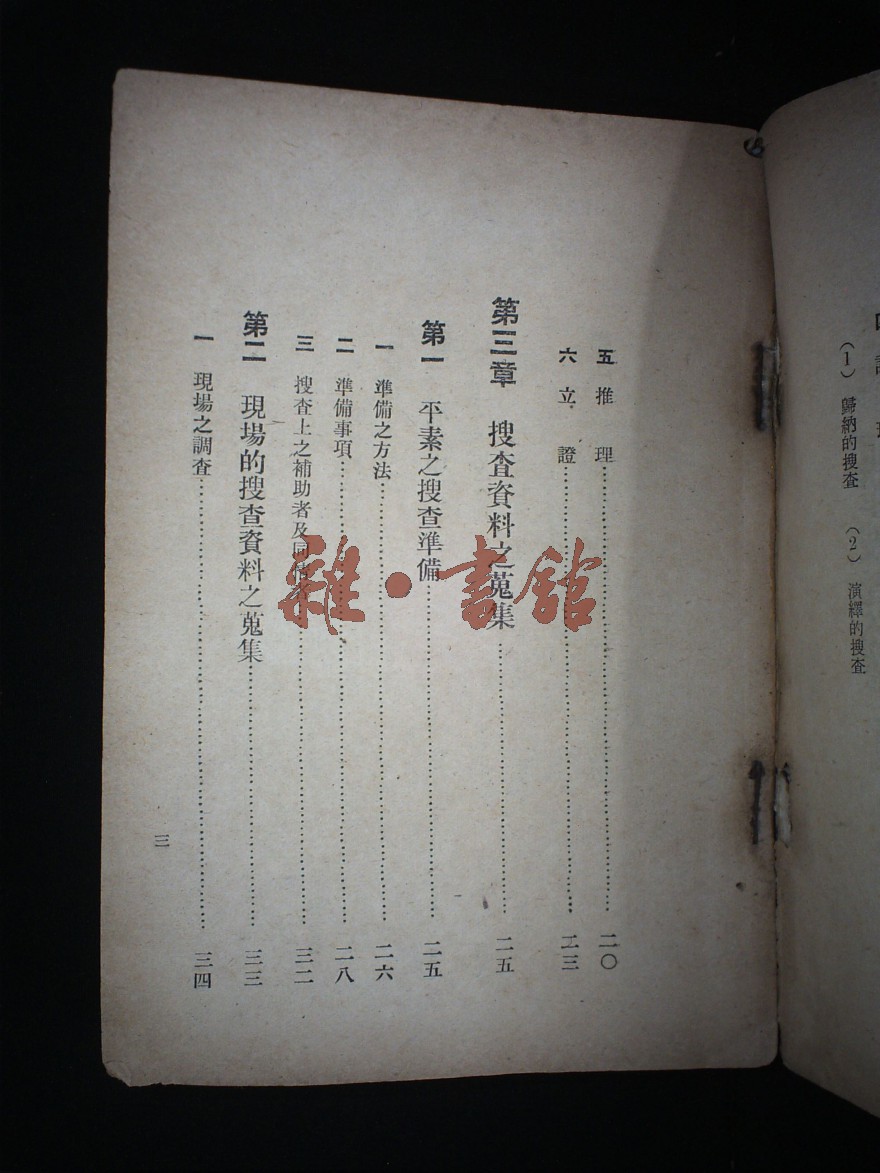 （1） 歸納的搜查 （2） 演繹的搜查
五 推 理 二〇
六 立 證 二三
第三章 搜查資料之蒐集 二五
第一 平素之搜查準備 二五
一 準備之方法 二六
二 準備事項 二八
三 搜查上之補助者及同 三二
第二 現場的搜查資料之蒐集 三三
一 現場之調查 三四
三
雜·書館